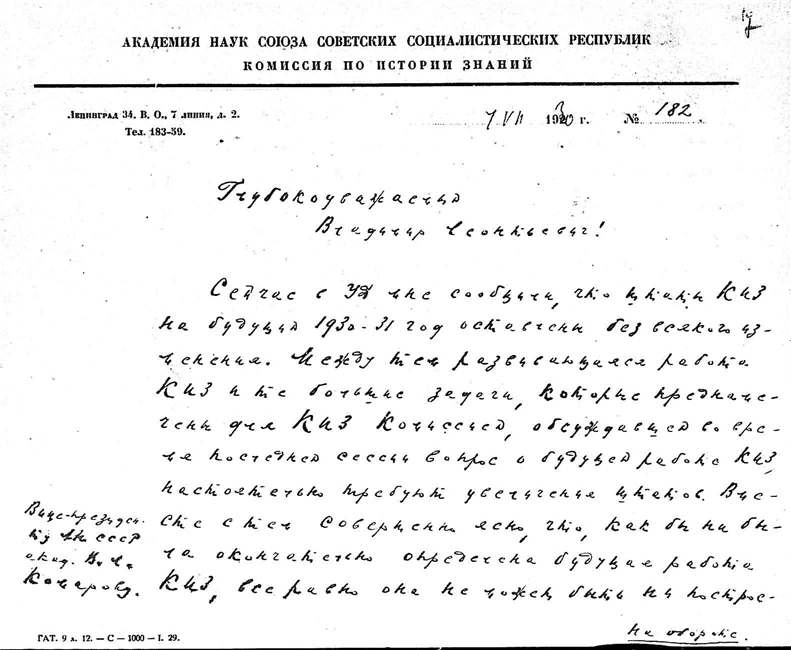 АКАДЕМИЯ НАУК СОЮЗА СОВЕТСКИХ СОЦИАЛИСТИЧЕСКИХ РЕСПУБЛИК
КОМИССИЯ ПО ИСТОРИИ ЗНАНИЙ
Ленинград 34. В. О., 7 линия, д. 2.
Тел. 183-59.
7 VII 1930 г. № 182
Глубокоуважаемый
Владимир Леонтьевич!
Сейчас в УД мне сообщили, что штаты КИЗ
на будущий 1930-31 год оставлены без всякого из-
менения. Между тем развивающаяся работа
КИЗ и те большие задачи, которые предначе-
чены для КИЗ Комиссией, обсуждавшей во вре-
мя последней сессии вопрос о будущей работе КИЗ,
настоятельно требуют увеличения штатов. Вме-
сте с тем совершенно ясно, что, как бы ни бы-
ла окончательно определена будущая работа
КИЗ, все равно она не может быть ни построе-
Вице-президен-
ту АН СССР
акад. В. Л.
Комарову.
на обороте.
ГАТ. 9 л. 12. — С — 1000 — I. 29.